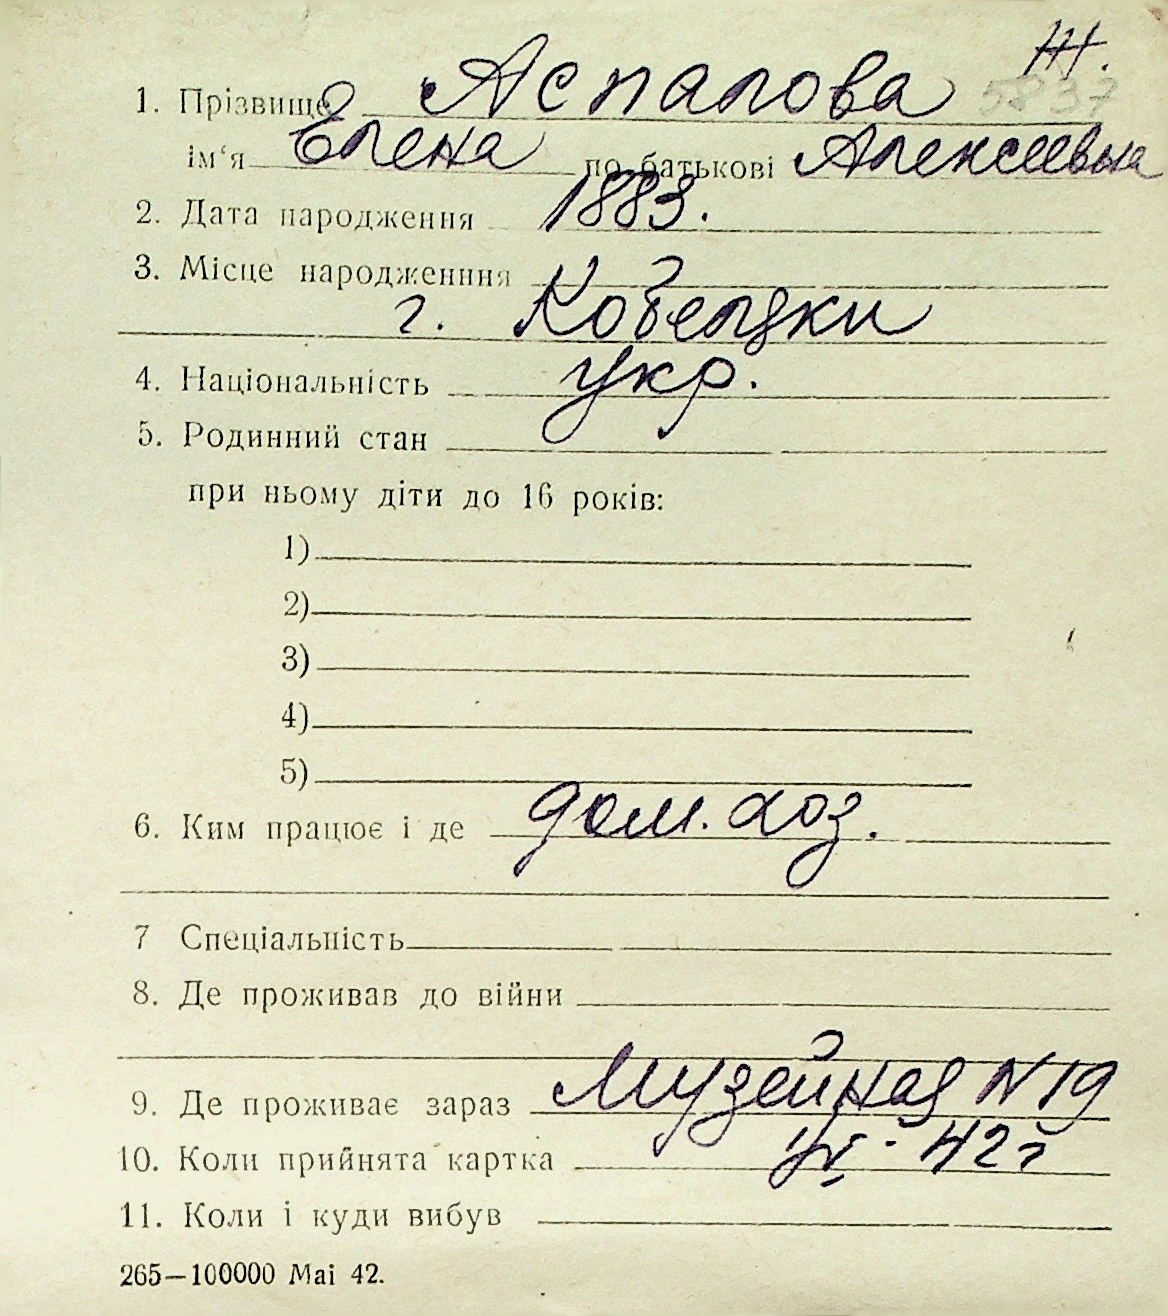 Ж.
1. Прізвище Аспалова 5837
ім'я Елена по батькові Алексеевна
2. Дата народження 1883.
3. Місце народженння
г. Кобеляки
4. Національність укр.
5. Родинний стан
при ньому діти до 16 років:
1)
2)
3)
4)
5)
6. Ким працює і де дом. хоз.
7 Спеціальність
8. Де проживав до війни
9. Де проживає зараз Музейная N 19
10. Коли прийнята картка 42 г
11. Коли і куди вибув
265—100000 Mai 42.